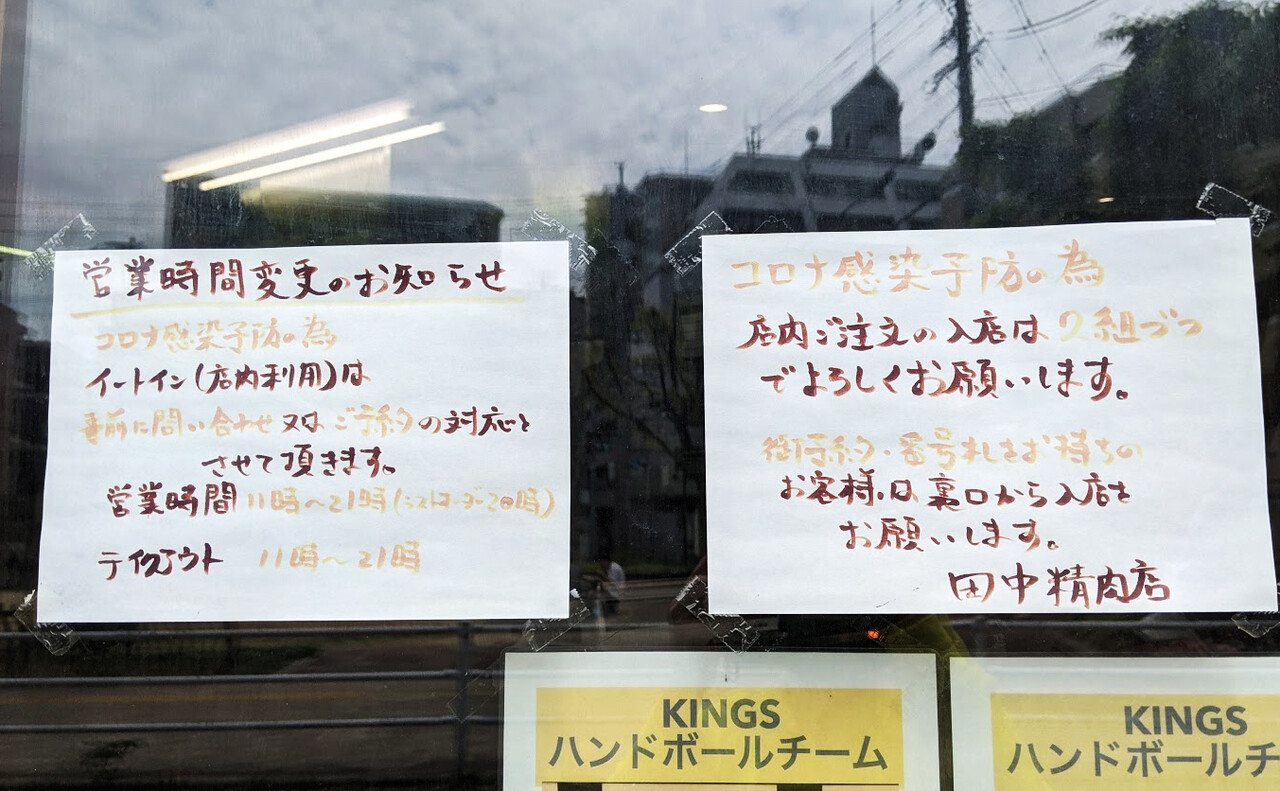 営業時間変更のお知らせ
コロナ感染予防の為
イートイン(店内利用)は
事前に問い合わせ又はご予約の対応と
させて頂きます。
営業時間 11時～21時(ラストオーダー20時)
テイクアウト 11時～21時
コロナ感染予防の為
店内ご注文の入店は2組づつ
でよろしくお願いします。
御予約・番号札をお持ちの
お客様は裏口から入店を
お願いします。
田中精肉店
KINGS
ハンドボールチーム
KINGS
ハンドボールチ